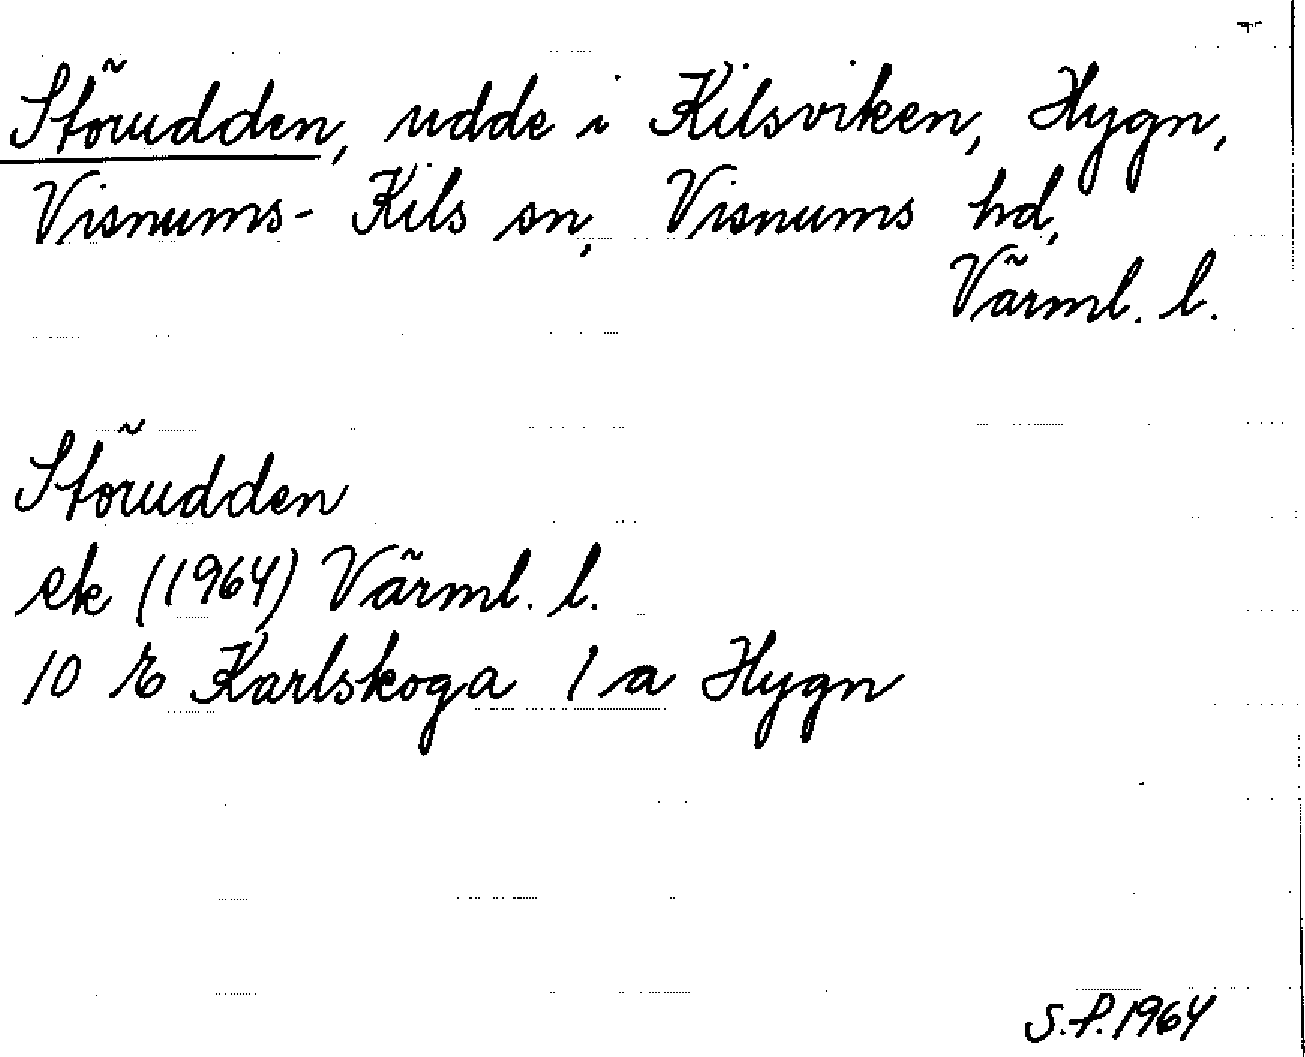 Störudden, udde i Kilsviken, Hygn,
Visnums-Kils sn, Visnums hd,
Värml. l.
Störudden
ek (1964) Värml. l.
10 E Karlskoga 1 a Hygn
S.P. 1964